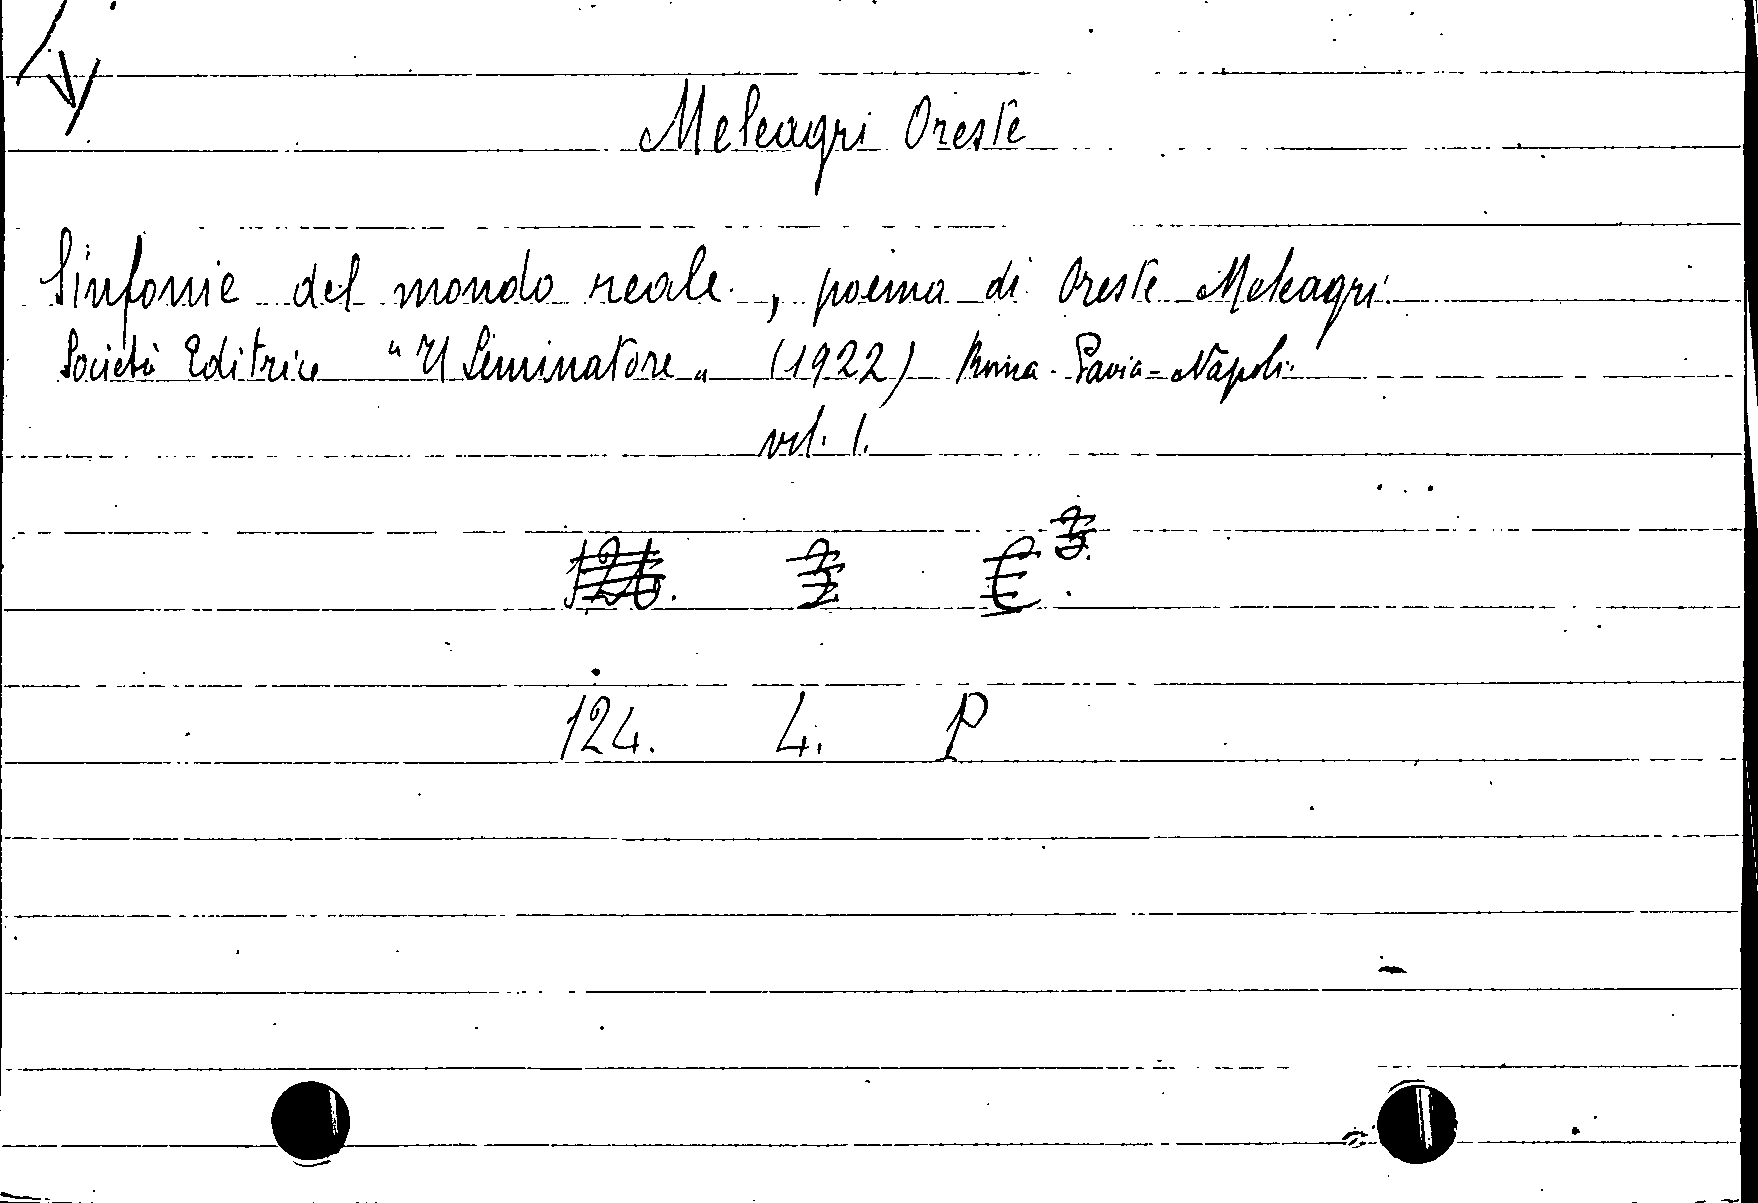 Meleagri Oreste
Sinfonie del mondo reale, poema di Oreste Meleagri.
Società Editrice "Il Seminatore" (1922) Roma-Pavia-Napoli.
vol. 1.
124. 4. P